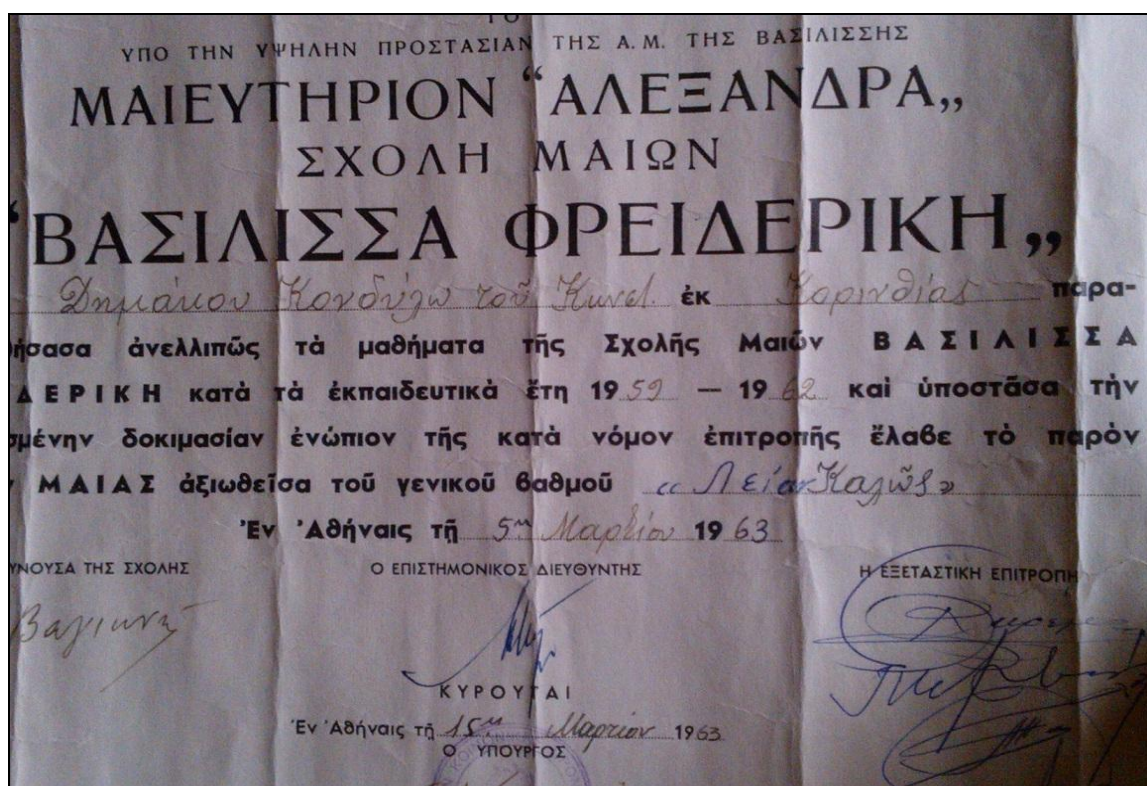 ΤΟ
ΥΠΟ ΤΗΝ ΥΨΗΛΗΝ ΠΡΟΣΤΑΣΙΑΝ ΤΗΣ Α.Μ. ΤΗΣ ΒΑΣΙΛΙΣΣΗΣ
ΜΑΙΕΥΤΗΡΙΟΝ “ΑΛΕΞΑΝΔΡΑ„
ΣΧΟΛΗ ΜΑΙΩΝ
“ΒΑΣΙΛΙΣΣΑ ΦΡΕΙΔΕΡΙΚΗ„
Δημάκου Κονδύλω τοῦ Κων. ἐκ Κορινθίας παρα-
ήσασα ἀνελλιπῶς τὰ μαθήματα τῆς Σχολῆς Μαιῶν ΒΑΣΙΛΙΣΣΑ
ΔΕΡΙΚΗ κατὰ τὰ ἐκπαιδευτικὰ ἔτη 1959 — 1962 καὶ ὑποστᾶσα τὴν
σμένην δοκιμασίαν ἐνώπιον τῆς κατὰ νόμον ἐπιτροπῆς ἔλαβε τὸ παρὸν
ΜΑΙΑΣ ἀξιωθεῖσα τοῦ γενικοῦ βαθμοῦ «Λείαν Καλῶς»
Ἐν Ἀθήναις τῇ 5ῃ Μαρτίου 1963
ΥΝΟΥΣΑ ΤΗΣ ΣΧΟΛΗΣ Ο ΕΠΙΣΤΗΜΟΝΙΚΟΣ ΔΙΕΥΘΥΝΤΗΣ Η ΕΞΕΤΑΣΤΙΚΗ ΕΠΙΤΡΟΠΗ
ΚΥΡΟΥΤΑΙ
Ἐν Ἀθήναις τῇ 15ῃ Μαρτίου 1963
Ο ΥΠΟΥΡΓΟΣ